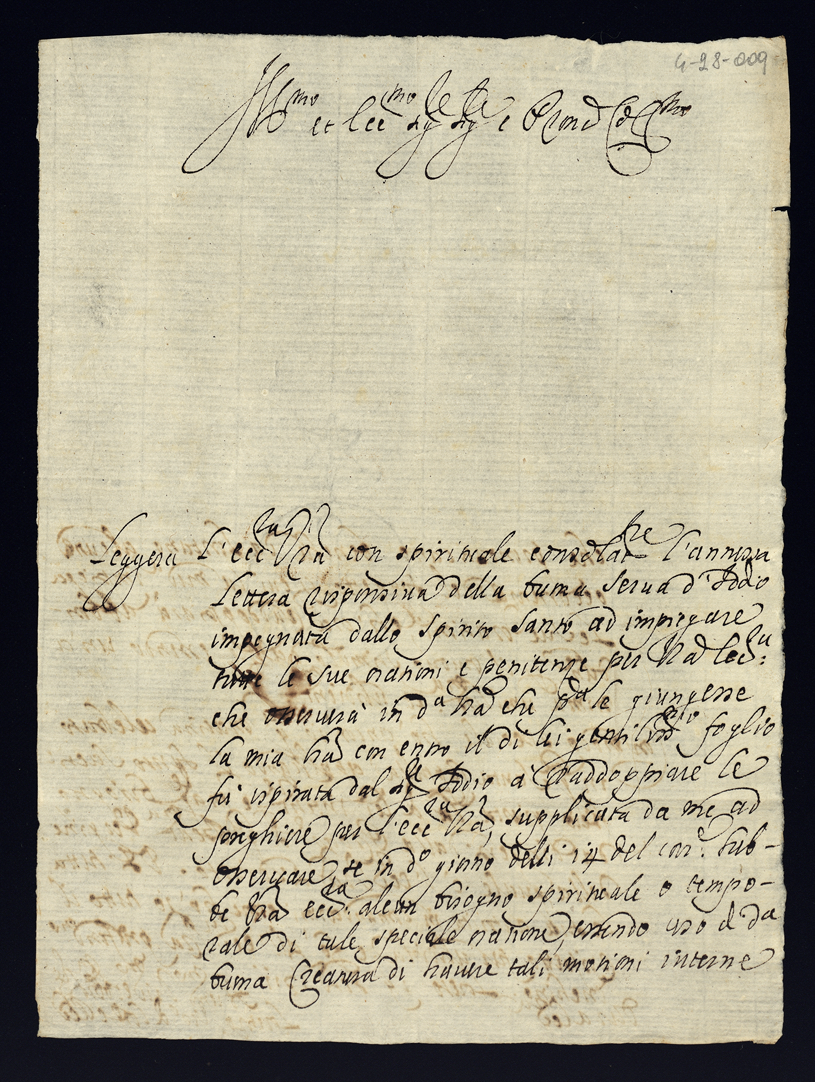 4-28-009
Ill.mo et Ecc.mo Sig.re Sig.re e Pron Col.mo
Leggerà l'ecc.za Vra con spirituale consolat.ne l'annessa
lettera responsiva della buona serva d'Iddio
impegnata dallo spirito santo ad impiegare
tutte le sue orationi e penitenze per Vra ecc.za:
che osservarà in d.a lra che p.a le giungesse
la mia lra con entro il di lei gentiliss.mo foglio
fù ispirata dal Sig.re Iddio à raddoppiare le
preghiere per l'ecc.za Vra, supplicata da me ad
osservare se in d.o giorno delli 14 del cor.e hub-
be Vra ecc.za alcun bisogno spirituale o tempo-
rale di tale speciale oratione, essendo uso d d.a
buona Creatura di havere tali motioni interne